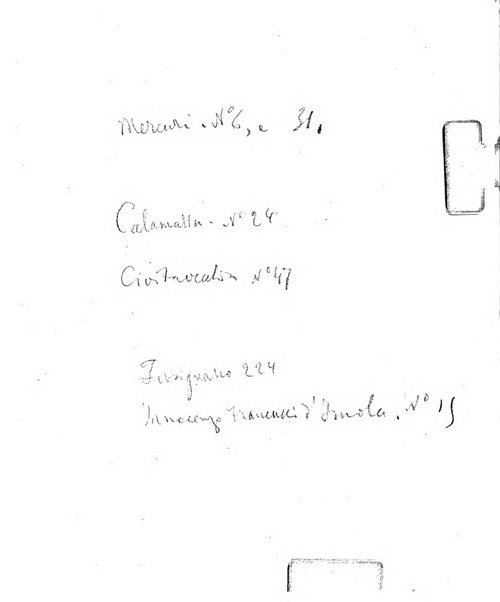 Mercuri. Nº 6, e 31.
Calamatta. Nº 24
Civitavecchia Nº 47
Fusignano 224
Innocenzo Francucci d'Imola. Nº 15